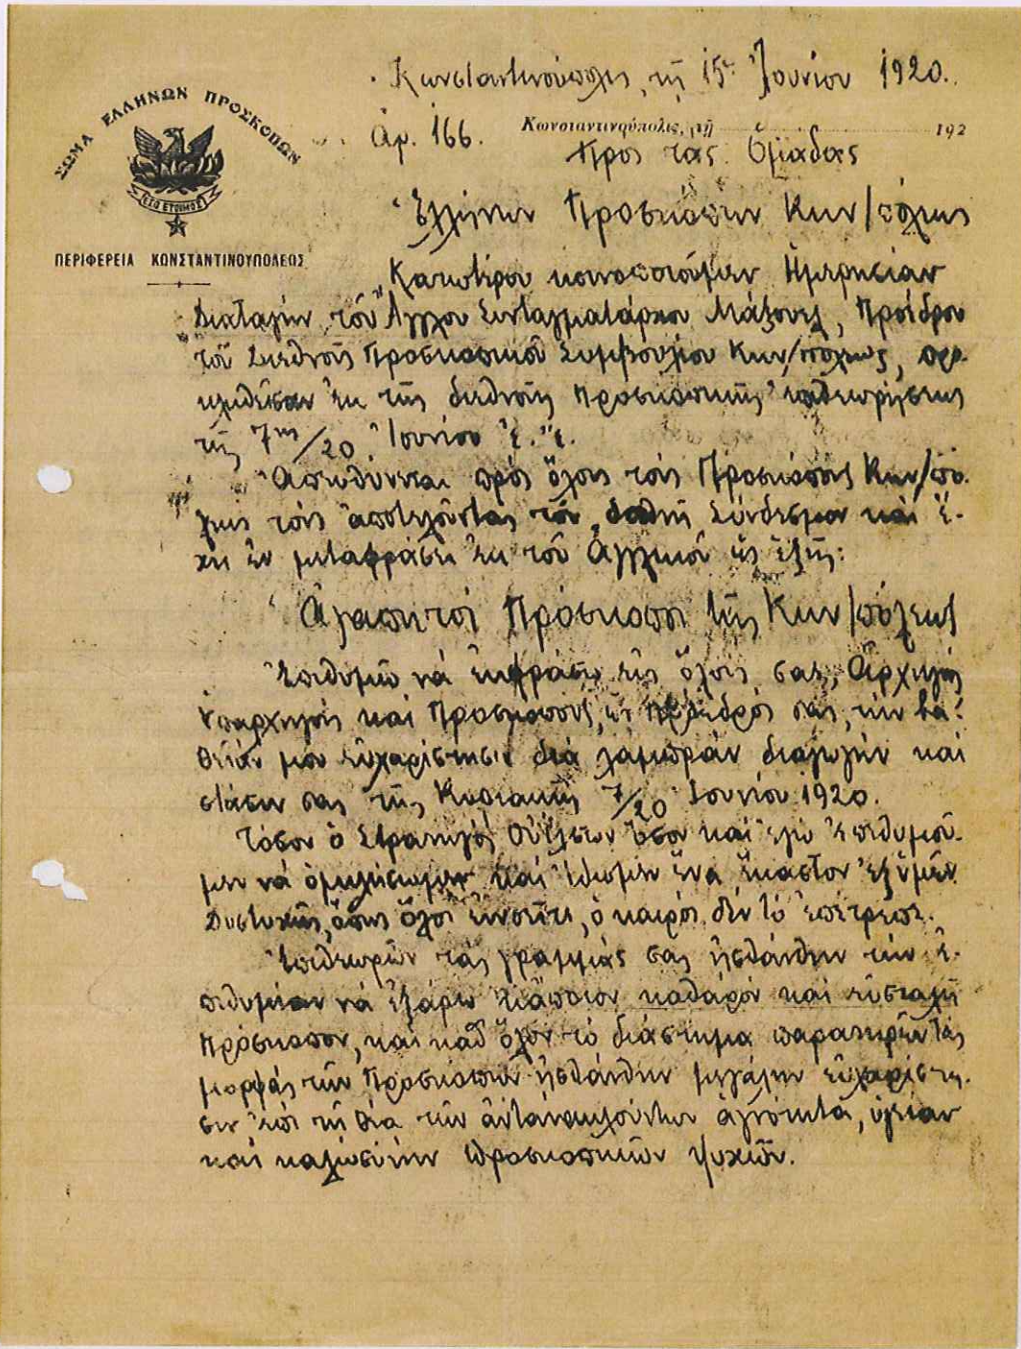 Κωνσταντινούπολις, τῇ 15ῃ Ἰουνίου 1920.
ΣΩΜΑ ΕΛΛΗΝΩΝ ΠΡΟΣΚΟΠΩΝ
Ἀρ. 166.
Κωνσταντινούπολις, τῇ 192
Πρὸς τὰς Ὁμάδας
ΕΣΟ ΕΤΟΙΜΟΣ
Ἑλλήνων Προσκόπων Κων/πόλεως
ΠΕΡΙΦΕΡΕΙΑ ΚΩΝΣΤΑΝΤΙΝΟΥΠΟΛΕΩΣ
Κατωτέρου κοινοποιοῦμεν Ἡμερησίαν
Διαταγὴν τοῦ Ἄγγλου Συνταγματάρχου Μάξουελ, Προέδρου
τοῦ Διεθνοῦς Προσκοπικοῦ Συμβουλίου Κων/πόλεως,
ἐκ τῆς διεθνοῦς προσκοπικῆς ἐπιθεωρήσεως
τῆς 7ης/20 Ἰουνίου ἐ. ἔ.
Ἀπευθύνεται πρὸς ὅλους τοὺς Προσκόπους Κων/πό-
λεως τοὺς ἀποτελοῦντας τὸν διεθνῆ Σύνδεσμον καὶ ἔ-
χει ἐν μεταφράσει ἐκ τοῦ Ἀγγλικοῦ ὡς ἑξῆς:
Ἀγαπητοὶ Πρόσκοποι τῆς Κων/πόλεως
Ἐπιθυμῶ νὰ ἐκφράσω εἰς ὅλους σας, Ἀρχηγοὺς
Ὑπαρχηγοὺς καὶ Προσκόπους, ὡς Πρόεδρός σας, τὴν βα-
θεῖάν μου εὐχαρίστησιν διὰ λαμπρὰν διαγωγὴν καὶ
στάσιν σας τῆς Κυριακῆς 7/20 Ἰουνίου 1920.
Τόσον ὁ Στρατηγὸς Οὐίλσων ὅσον καὶ ἐγὼ ἐπεθυμοῦ-
μεν νὰ ὁμιλήσωμεν καὶ ἴδωμεν ἕνα ἕκαστον ἐξ ὑμῶν
Δυστυχῶς, ὅπως ὅλοι ἐννοεῖτε, ὁ καιρὸς δὲν τὸ ἐπέτρεπε.
Ἐπιθεωρῶν τὰς γραμμάς σας ᾐσθάνθην τὴν ἐ-
πιθυμίαν νὰ ἐξάρω κάποιον καθαρὸν καὶ εὐσταλῆ
πρόσκοπον, καὶ καθ' ὅλον τὸ διάστημα παρατηρῶν τὰς
μορφὰς τῶν Προσκόπων ᾐσθάνθην μεγάλην εὐχαρίστη-
σιν ἐπὶ τῇ θέᾳ τῶν ἀντανακλούντων ἁγνότητα, ὑγείαν
καὶ καλωσύνην προσκοπικῶν ψυχῶν.